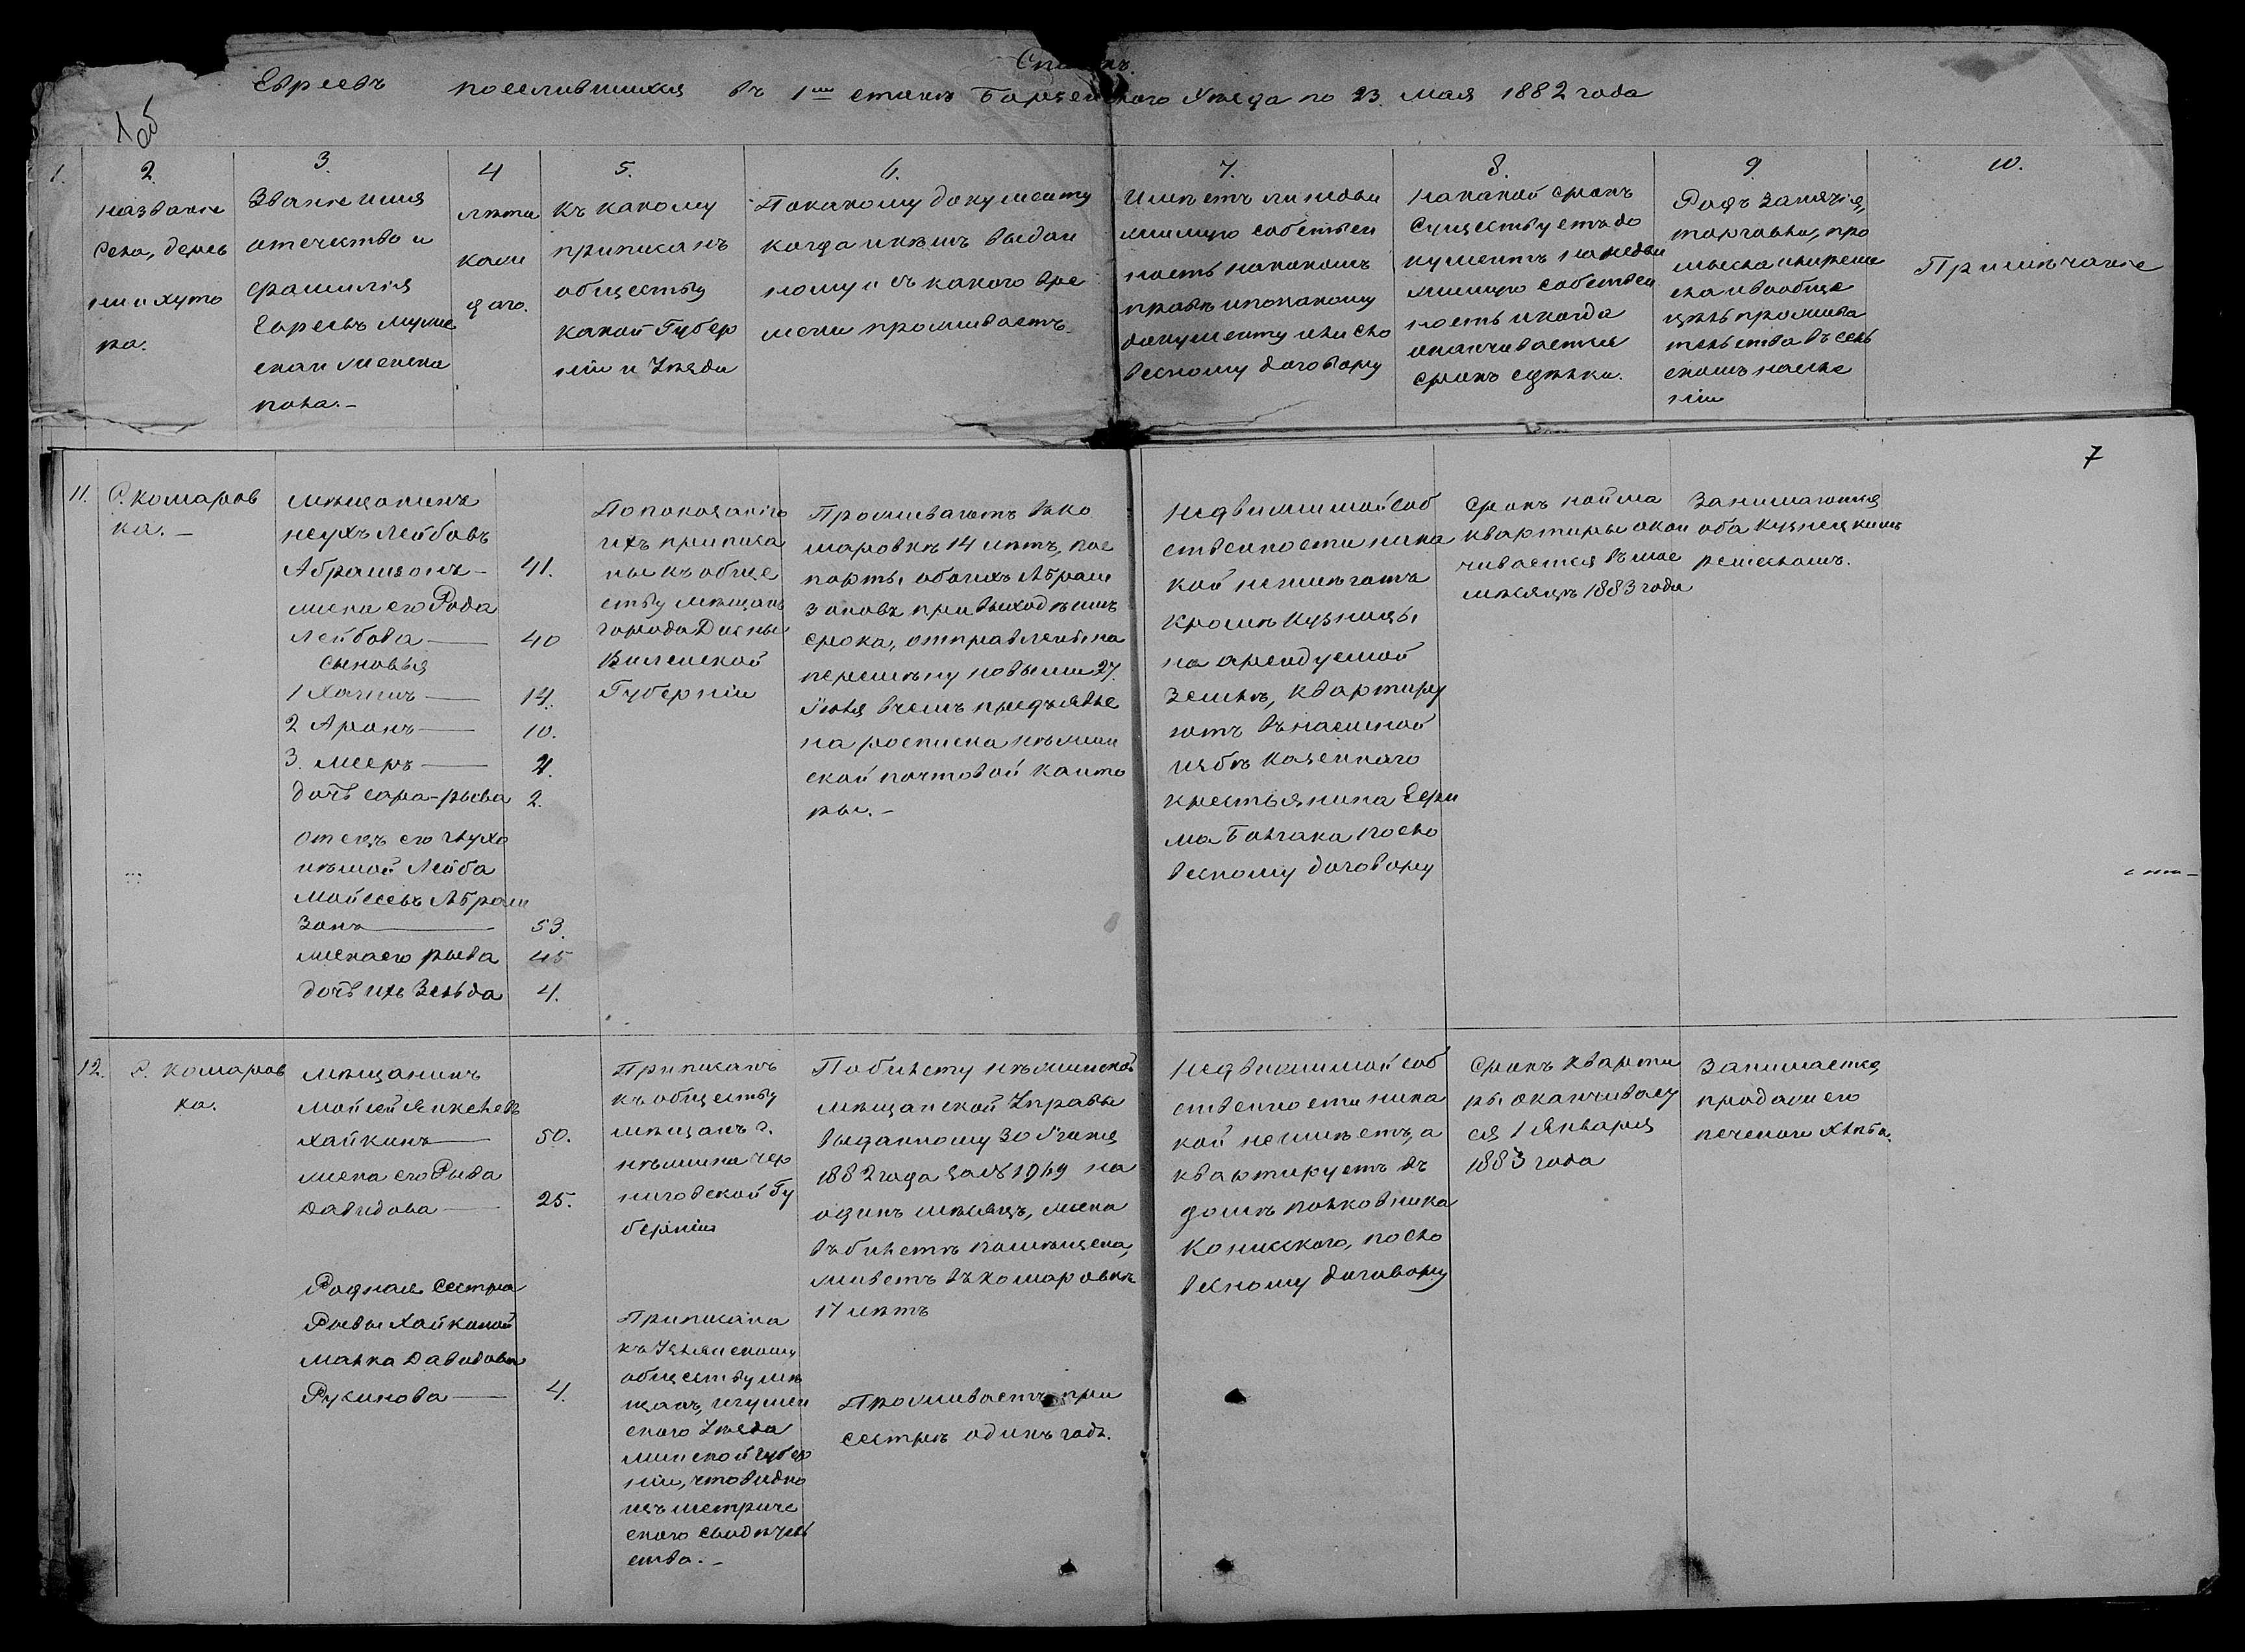 Списокъ
Евреевъ поселившихся въ 1мъ станѣ Борзенского Уѣзда по 23. мая 1882 года
1 об
1.
2.
Названіе
Села, дерев
ни и хуто
ра.
3.
Званіе имя
отечество и
фамилія
Евреевъ муже
скаи женска
пола.–
4
лѣта
кажд
даго.
5.
Къ какому
приписанъ
обществу
какой Губер
ніи и Уѣзда
6.
По какому документу
когда икѣмъ выдан
ному и съ какого вре
мени проживаетъ.
7.
Имѣетъ ли недви
жимую собствен
ность на какомъ
правѣ ипокакому
документу или сло
весному договору
8.
На какой срокъ
существуетъ до
кументъ на недви
жимую собствен
ность и когда
оканчивается
срокъ сдѣлки.
9
Родъ занятія,
торговли, про
мысла и ремес
ла и вообще
цѣль прожива
тельства въ сель
скомъ населе
ніи
10.
Примѣчаніе
7
11.
С. Комаров
ка.–
Мѣщанинъ
Неухъ Лейбовъ
Абрамзонъ– 41.
жена его Рода
Лейбова– 40
сыновья
1 Хаимъ– 14.
2 Аронъ– 10.
3. Мееръ– 4.
дочь Сара-Рыва 2.
Отецъ его глухо
нѣмой Лейба
Мойсеевъ Абрам
зонъ 53.
жена его Рыва 45
дочь ихъ Зельда 4.
По показанію
ихъ приписа
ны къ обще
ству мѣщанъ
города Дисны
Виленской
Губерніи
Проживаютъ въ Ко
маровкѣ 14 лѣтъ, пас
порты обоихъ Абрам
зоновъ при выходѣ имъ
срока, отправлены на
перемѣну новыми 27.
Іюля вчемъ предъявле
на росписка нѣжин
ской почтовой канто
ры.–
Недвижимой соб
ственности ника
кой неимѣютъ
кромѣ кузницы
на арендуемой
землѣ, квартиру
ютъ въ наемной
избѣ казеннаго
крестьянина Ефи
ма Болгака посло
весному договору
Срокъ найма
квартиры окан
чивается въ мае
мѣсяцѣ 1883 года
Занимаются
оба кузнецкимъ
ремесломъ.
12.
С. Комаров
ка.
Мѣщанинъ
Мойсей Янкелевъ
Хайкинъ 50.
жена его Рыва
Давидова 25.
Родная сестра
Рывы Хайкиной
Малка Давидова
Рукинова 4.
Приписанъ
къ обществу
мѣщанъ г.
Нѣжина Чер
ниговской Гу
берніи
Приписана
къ Узлянскому
обществу мѣ
щанъ, Игумен
ского Уѣзда
Минской Губер
ніи, что видно
изъ метриче
ского свидѣтель
ства.–
По билету нѣжинской
мѣщанской Управы
выданному 30 Іюня
1882 года за № 1969 на
одинъ мѣсяцъ, жена
въ билетѣ помѣщена,
живетъ въ Комаровкѣ
17 лѣтъ
Проживаетъ при
сестрѣ одинъ годъ.
Недвижимой соб
ственности ника
кой неимѣетъ, а
квартируетъ въ
домѣ полковника
Конисского, посло
весному договору
Срокъ кварти
ры оканчивает
ся 1 Января
1883 года
Занимается
продажею
печенаго хлѣба.